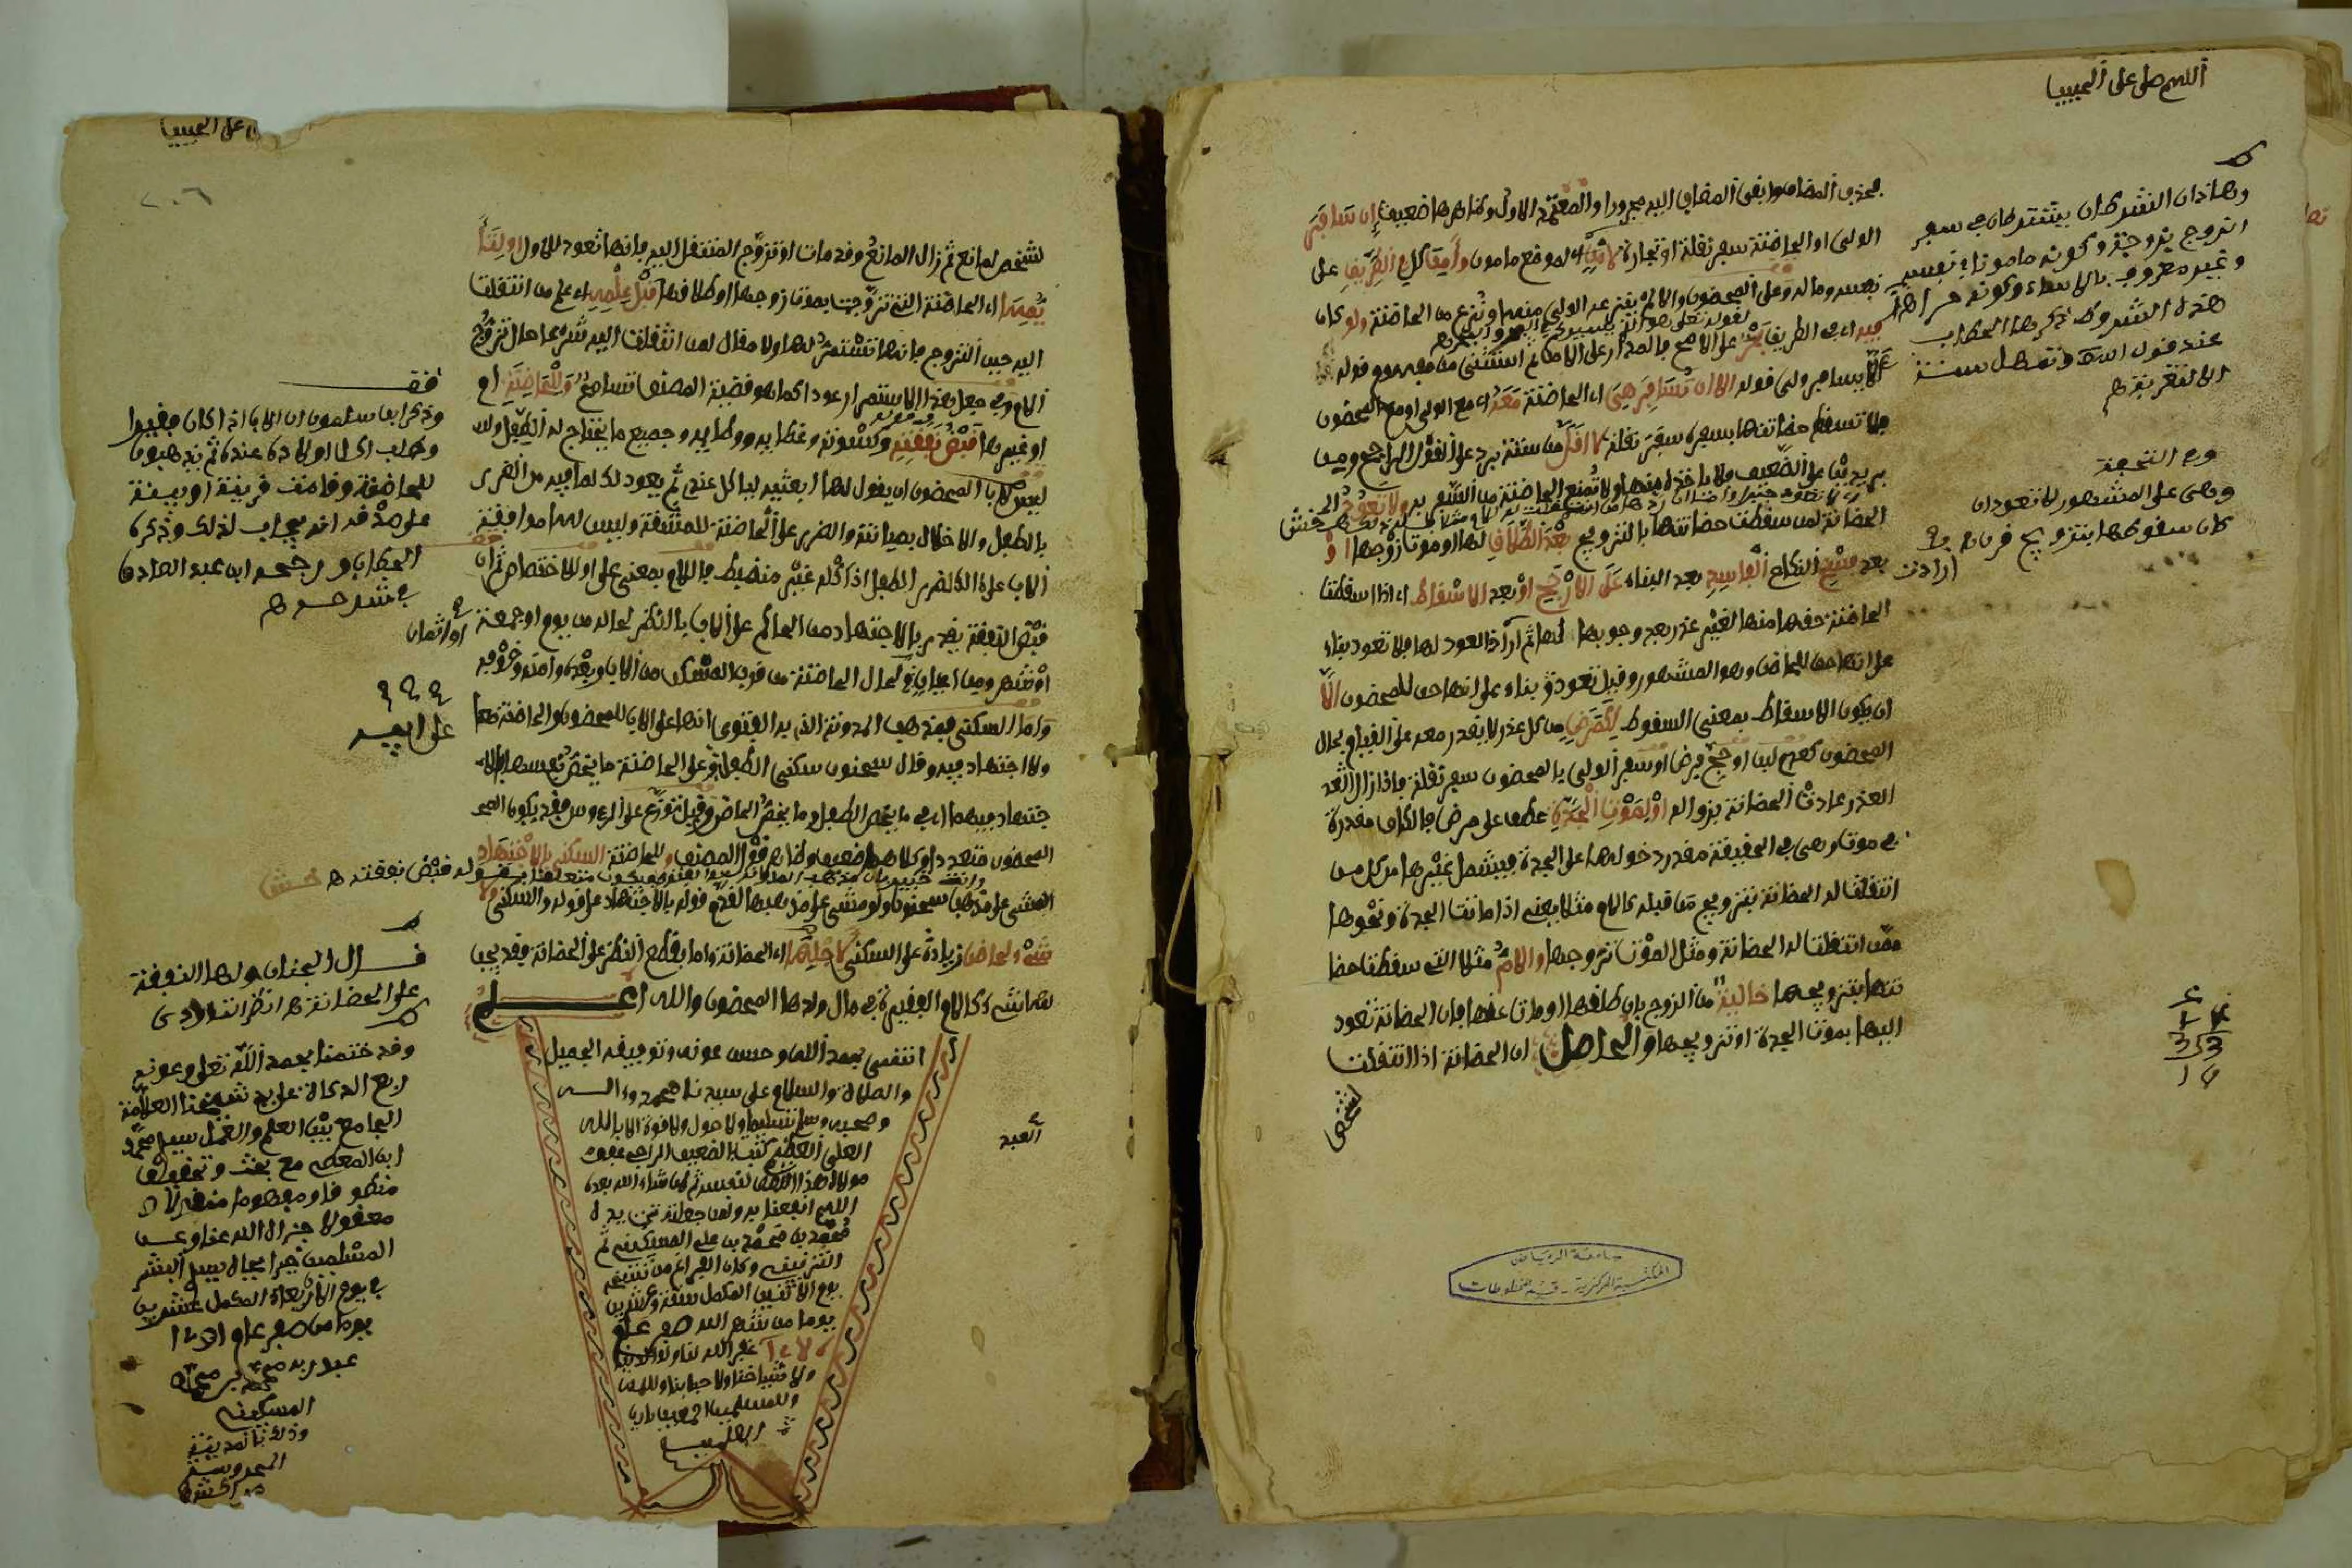 اللهم صل على الحبيب
بحذف المضاف وابقى المضاف اليه مجرورا والمعتمد الاول وظاهرها ضعيف إن سافر
الولي او الحاضنة سفر نقلة او تجارة لأمن اى لموضع مامون وأمن كل في الطريق على
نفسه وماله وعلى المحضون والا لم ينزعه الولي منها ولم تنزع من الحاضنة ولو كان
فيه اى في الطريق بحر على الاصح فالمدار على الامن ثم استثنى من مفهوم قوله
الا يسافر ولي قوله الا ان تسافر هي اى الحاضنة معه اى مع الولي او مع المحضون
فلا تسقط حضانتها بسفره سفر نقلة لا اقل من ستة برد على القول الراجح ومن
بريدين على الضعيف فلا ياخذه منها ولا تمنع الحاضنة من السفر به ولا تعود
الحضانة لمن سقطت حضانتها بالتزويج بعد الطلاق لها او موت زوجها او
بعد فسخ النكاح الفاسد بعد البناء على الارجح او بعد الاسقاط اى اذا اسقطت
الحاضنة حقها منها لغير عذر بعد وجوبها لها ثم أراد العود لها فلا تعود بناء
على انها حق للحاضن وهو المشهور وقيل تعود بناء على انها حق للمحضون الا
ان يكون الاسقاط بمعنى السقوط لكمرض من كل عذر لا يقدر معه على القيام بحال
المحضون كعدم لبن او حج فرض او سفر الولي بالمحضون سفر نقلة فاذا زال
العذر عادت الحضانة بزواله او لموت الجدة عطف على مرض فالكاف مقدرة
في موت وهي في الحقيقة مقدر دخولها على الجدة فيشمل غيرها من كل من
انتقلت له الحضانة بتزويج من قبله كالام مثلا يعني اذا ماتت الجدة ونحوها
ممن انتقلت له الحضانة ومثل الموت تزوجها والام مثلا التي سقطت حضا
نتها بتزويجها خالية من الزوج بان طلقها او مات عنها فان الحضانة تعود
اليها بموت الجدة او تزويجها والحاصل ان الحضانة اذا انتقلت
لشخص
وهاذان الشرطان يشترطان في سفر
الزوج بزوجته وكونه مامونا في نفسه
وغير معروف بالاساءة وكونه حرا
هذه الشروط ذكرها الحطاب
عند قول
وفي التحفة
وهي على المشهور لا تعود ان
كان سقوطها بتزويج قرن
ارادت
جامعة الرياض
المكتبة المركزية - قسم المخطوطات
على الحبيب
٢٠٦
لشخص لمانع ثم زال المانع وقد مات او تزوج المنتقل اليه فانها تعود للاول او لتأ
يمها اى الحاضنة التي تزوجت بموت زوجها او طلاقها قبل علمه اى علم من انتقلت
اليه حين التزوج فانها تستمر لها ولا مقال لمن انتقلت اليه شرعا حال تزوج
الام وفي جعل هذا الاستمرار عودا كما هو قضية المصنف تسامح وللحاضنة ام
او غيرها قبض نفقته وكسوته وغطائه ووطائه وجميع ما يحتاج له الطفل وليس
لابي المحضون ان يقول لها ابعثيه لياكل عندي ثم يعود لك لما فيه من الضرر
بالطفل والاخلال بصيانته والضرر على الحاضنة للمشقة وليس لها موافقة
الاب على ذلك لضرر الطفل اذ اكله غير منضبط فاللام بمعنى على او للاختصاص ثم ان
قبض النفقة يقدر بالاجتهاد من الحاكم على الاب بالنظر لحاله من يوم او جمعة
او شهر ومن اعيان ولحال الحاضنة من قرب المسكن من الاب وبعده وامنه وخوفه
واما السكنى فمذهب المدونة الذي به الفتوى انها على الاب للمحضون والحاضنة معا
ولا اجتهاد فيه وقال سحنون سكنى الطفل على ابيه وعلى الحاضنة ما يخص نفسها بالا
جتهاد فيهما اى في ما يخص الطفل وما يخص الحاضن وقيل توزع على الرءوس فقد يكون المحـ
المحضون متعددا وكلاهما ضعيف وظاهر قول المصنف وللحاضنة السكنى بالاجتهاد
المشي على مذهب سحنون ولو مشى على مذهبها لقدم قوله بالاجتهاد على قوله والسكنى ولا
شيء لحاضن زيادة على السكنى لاجلها اى الحضانة واما بقطع النظر على الحضانة فقد يجب
لها شيء كالام الفقيرة في مال ولدها المحضون والله اعلم
انتهى بحمد الله وحسن عونه وتوفيقه الجميل
والصلاة والسلام على سيدنا محمد وءاله
وصحبه وسلم تسليما ولا حول ولا قوة الا بالله
العلي العظيم كتبه الضعيف الراجي عفو
مولاه هذا النصف لنفسه ثم لمن شاء الله بعده
اللهم انفعنا به ولمن جعلته تحت يده
محمد بن محمد بن علي المسكيني ثم
وكان الفراغ من نسخه
يوم الاثنين المكمل ستة وعشرين
يوما من شهر الله صفر عام
غفر الله لنا ولوالدينا
ولاشياخنا ولاحبابنا وللمـ
وللمسلمين اجمعين يارب
العلمين
العبد
فقـ
وذكر ابن سلمون ان الاب اذا كان فقيرا
وطلب اكل اولاده عنده ثم يذهبون
للحاضنة وقامت قرينة او بينة
على صدقه انه يجاب لذلك وذكره
الحطاب ورجحه ابن عبد الصادق
في شرحه
او اثمان
على ابيه
قال الجنان ولها النفقة
على الحضانة
وقد ختمنا بحمد الله تعلى وعونه
ربع الزكاة على يد شيخنا العلامة
الجامع بين العلم والعمل سيد محمد
ابن المعطي مع بحث وتحقيق
منطوقا ومفهوما منقولا و
معقولا جزاه الله عنا وعن
المسلمين خيرا بجاه سيد البشر
في يوم الاربعاء المكمل عشرين
يوما من صفر عام
عبد ربه محمد بن محمد
المسكيني
وذلك بالمدينة
المحروسة
مراكش